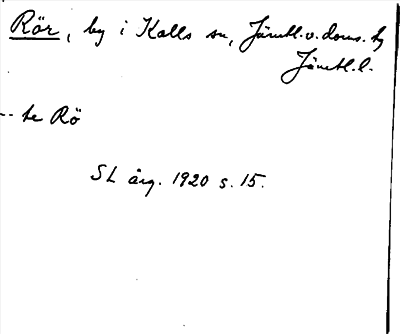 Rör, by i Kalls sn, Jämtl.v.doms.
Jämtl.l.
-- te Rö
SL årg. 1920 s. 15.